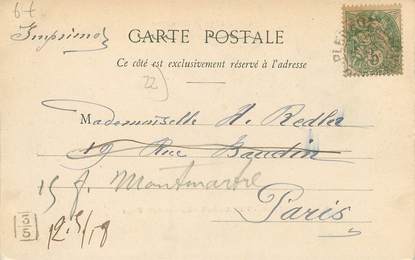 6t
Imprimé
CARTE POSTALE
Ce côté est exclusivement réservé à l'adresse
22)
Mademoiselle A. Redler
19 Rue Baudin
15 f. Montmartre
Paris
5